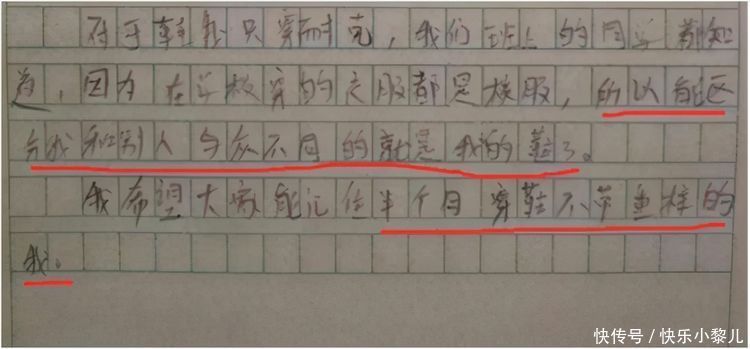 对于鞋我只穿耐克，我们班上的同学都知
道，因为在学校穿的衣服都是校服，所以能区
分我和别人与众不同的就是我的鞋了。
我希望大家能记住半个月穿鞋不带重样的
我。
快传号／快乐小黎儿